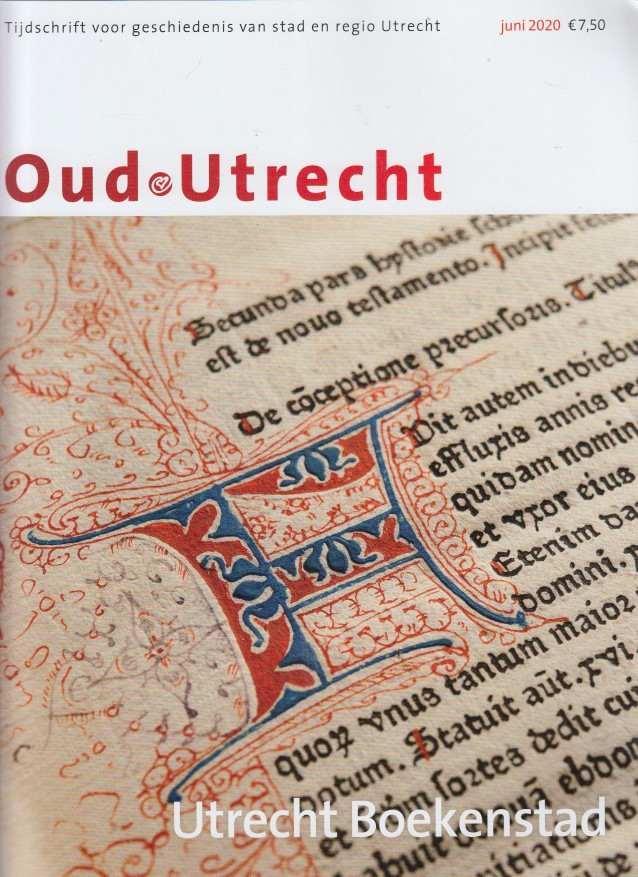 Tijdschrift voor geschiedenis van stad en regio Utrecht juni 2020 €7,50
Oud Utrecht
Secunda pars hystorie
est de nouo testamento. Incipit
De cōceptione precursoris. Titulꝰ
Dit autem in diebu
effluxis annis re
quidam nomin
et vxor eius
Etenim da
domini.
quoꝝ vnus tantum maior
Statuit aūt. xvi.
et dedit cui
Utrecht Boekenstad